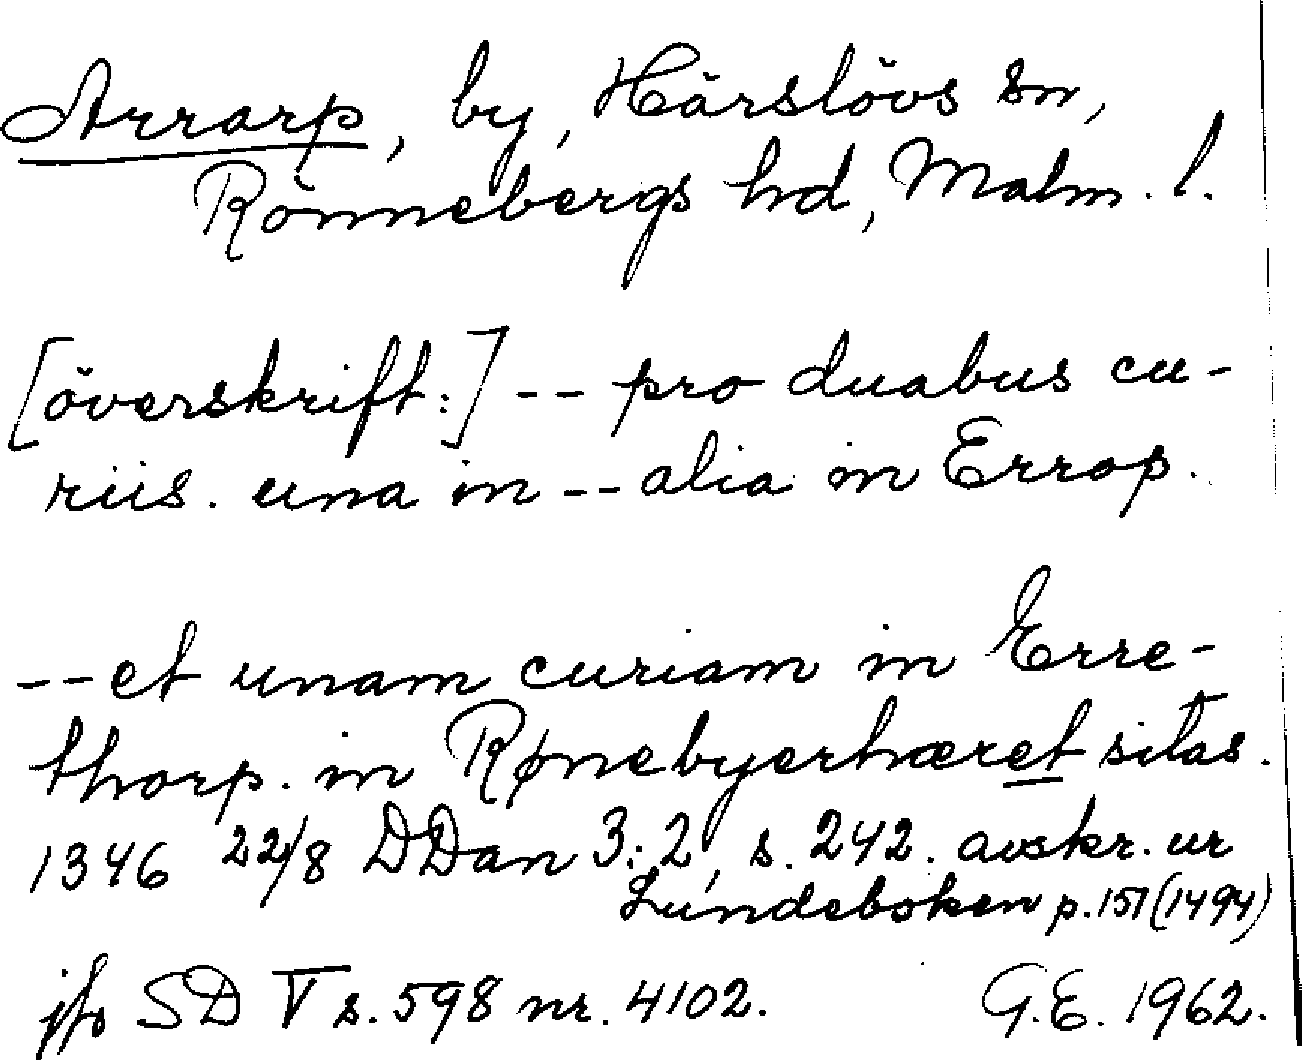 Arrarp, by, Härslövs sn,
Rönnebergs hd, Malm. l.
[överskrift:] -- pro duabus cu-
riis. una in -- alia in Errop.
-- et unam curiam in Erre-
thorp. in Rønebyerhæret sitas.
1346 22/8 DDan 3:2, s. 242. avskr. ur
Lundeboken p. 151 (1494)
jfr SD V s. 598 nr. 4102. G.E. 1962.